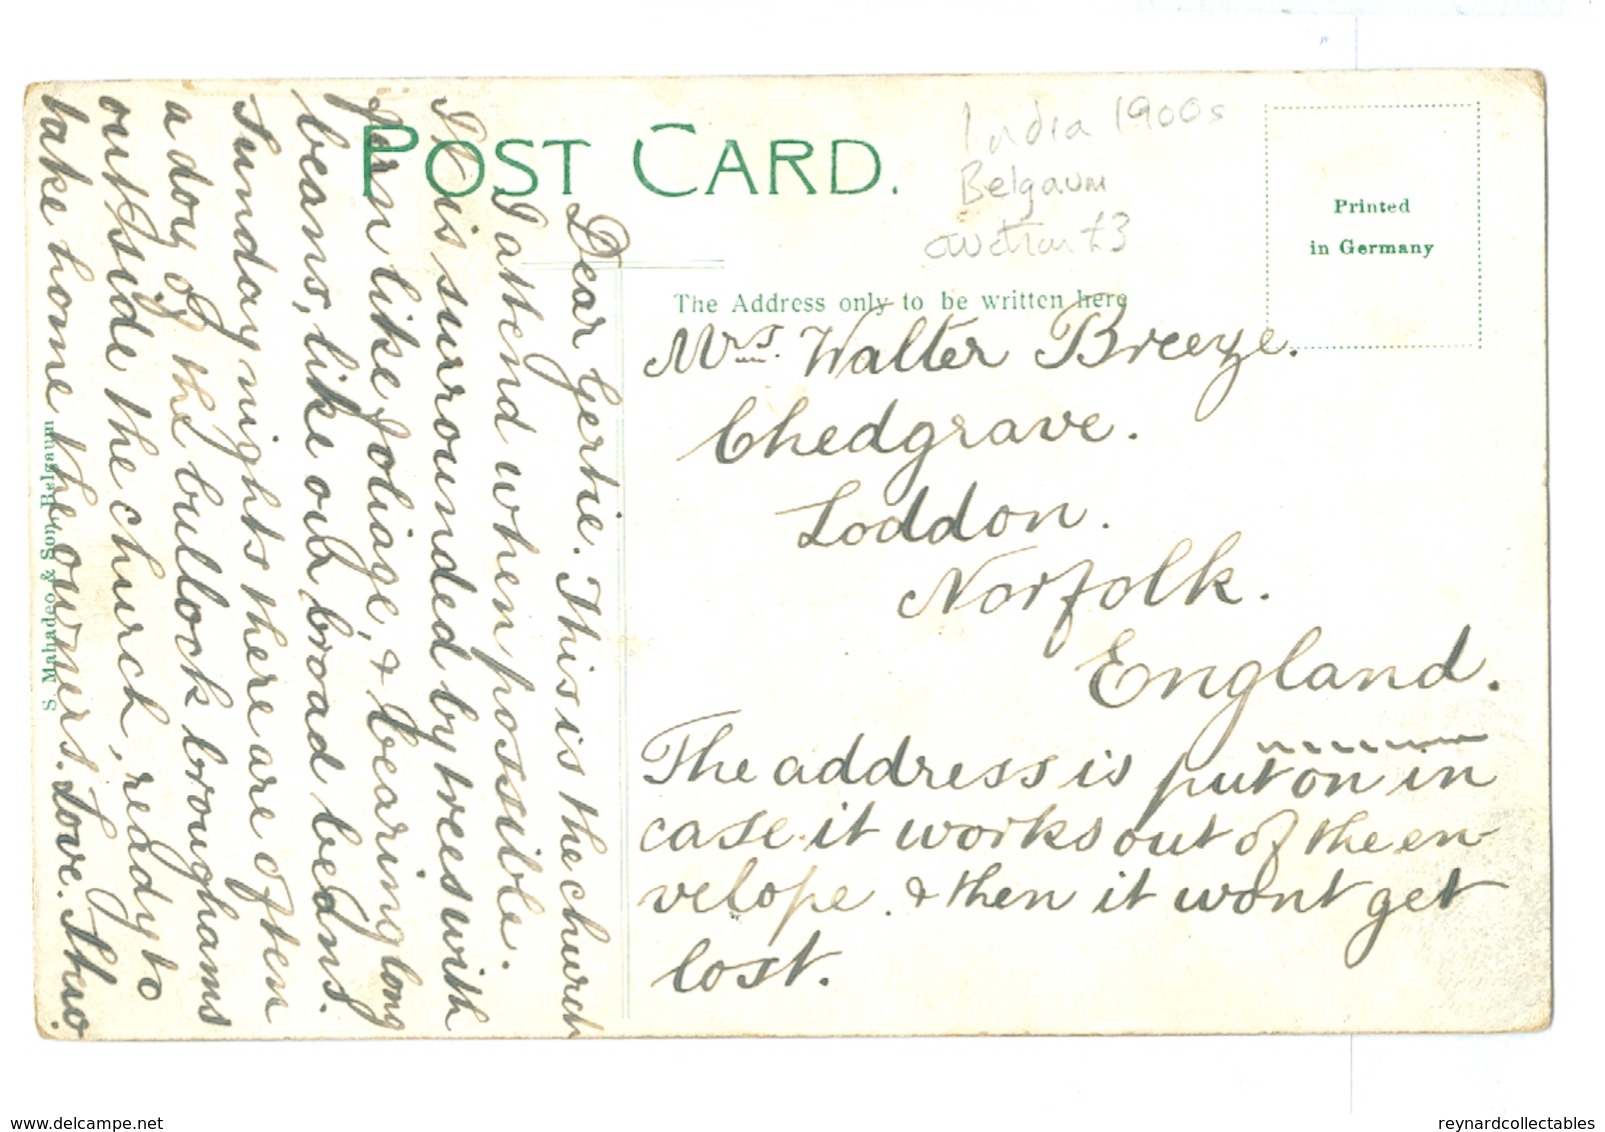 POST CARD.
India 1900s
Belgaum
auction £3
Printed
in Germany
The Address only to be written here
Mrs. Walter Breeze.
Chedgrave.
Loddon.
Norfolk.
England.
The address is put on in
case it works out of the en-
velope. & then it wont get
lost.
Dear Gertie. This is the church
I attend when possible.
It is surrounded by trees with
fern like foliage, & bearing long
beans, like our broad beans.
Sunday nights there are often
a doz of the bullock broughams
outside the church, ready to
take home the owners. Love.
S. Mahadeo & Son, Belgaum
delcampe.net
reynardcollectables